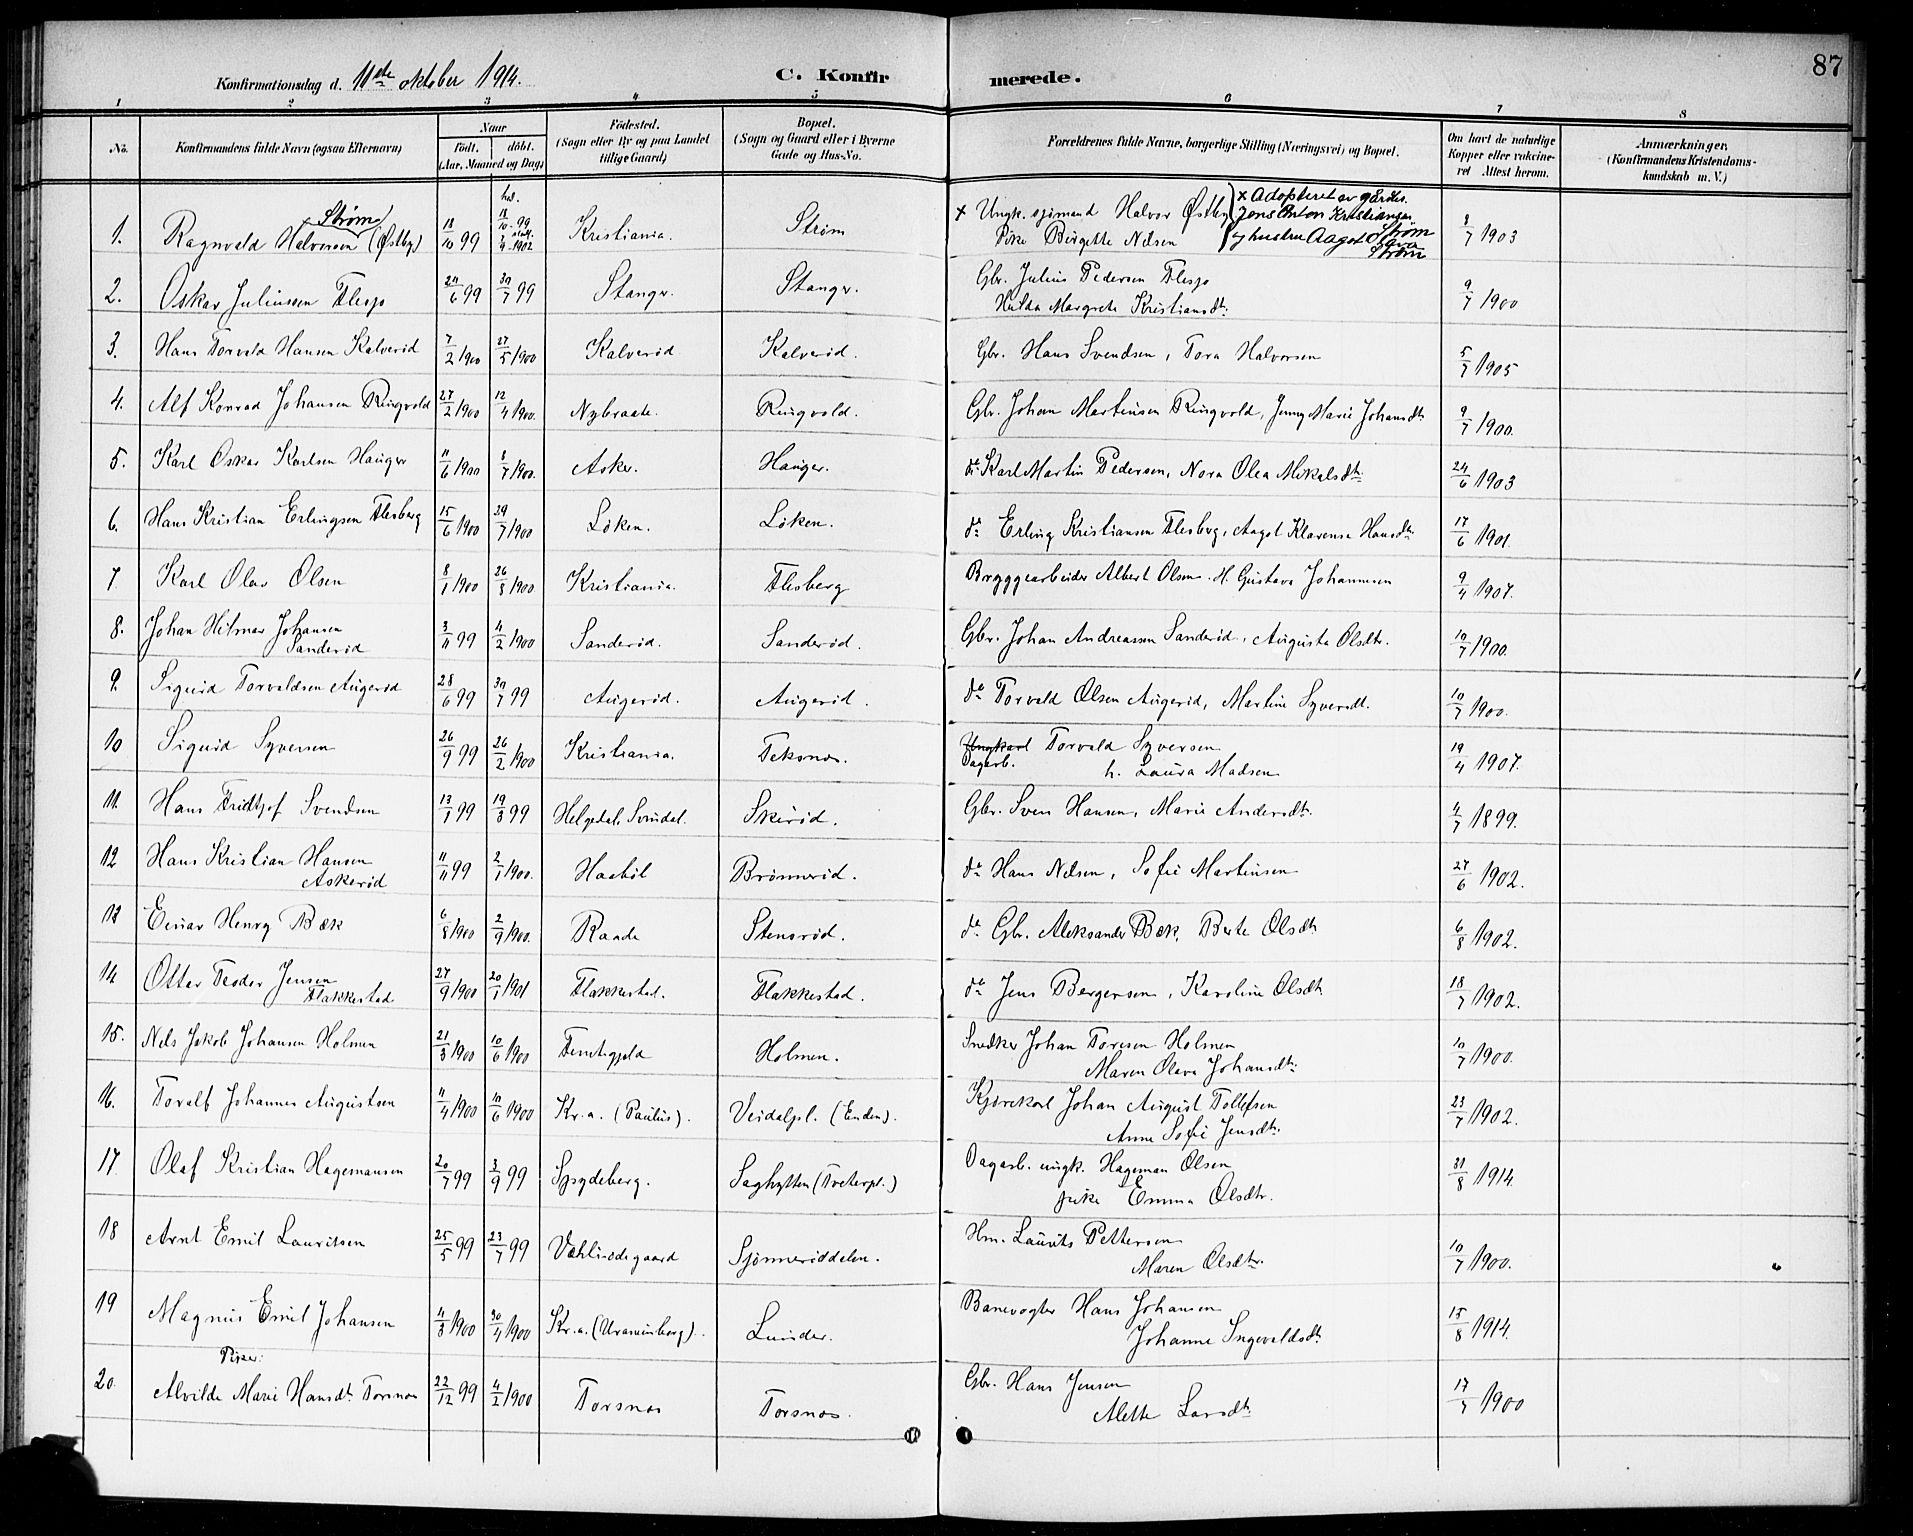 87
Konfirmationsdag d. 11te oktober 1914.
C. Konfirmerede.
1 2 3 4 5 6 7 8
No. Konfirmandens fulde Navn (ogsaa Efternavn) Naar födt. döbt. (Aar, Maaned og Dag) Födested. (Sogn eller By og paa Landet tillige Gaard) Bopæl. (Sogn og Gaard eller i Byerne Gade og Hus-No. Forældrenes fulde Navne, borgerlige Stilling (Næringsvei) og Bopæl. Om havt de naturlige Kopper eller vakcineret Attest herom. Anmærkninger. (Konfirmandens Kristendomskundskab m. V.)
Strøm
1. Ragnvald Halvorsen (Østby) 18/10 99 18/10 99 3/4 1902 Kristiania. Strøm x Ungk. sjømand Halvor Østby 8/7 1903
Pike Birgette Nilsen
x Adopteret av gårdbr.
Jens Anton Kristiansen
Strøm
og hustru Aagot
Strøm
2. Oskar Juliussen Flesjø 24/6 99 30/7 99 Stangr. Stangr. Gbr. Julius Pedersen Flesjø 9/7 1900
Hulda Margrete Kristiansdt.
3. Hans Torvald Hansen Kalverød 7/2 1900 27/5 1900 Kalverød Kalverød. Gbr. Hans Svendsen, Tora Halvorsen 5/7 1905
4. Alf Konrad Johansen Ringvold 27/2 1900 12/4 1900. Nybraate. Ringvold. Gbr. Johan Martinsen Ringvold, Jenny Marie Johansdt. 9/7 1900.
5. Karl Oskar Karlsen Hauger 11/6 1900 8/7 1900. Asker. Hauger. do Karl Martin Pedersen, Nora Olea Mikalsdtr. 24/6 1903
6. Hans Kristian Erlingsen Flesberg 15/6 1900 29/7 1900 Løken. Løken. do Erling Kristiansen Flesberg, Aagot Klarense Hansdtr. 17/6 1901.
7 Karl Olav Olsen 8/1 1900 26/8 1900 Kristiania. Flesberg Bryggearbeider Albert Olsen. H. Gustava Johannesen 9/4 1907.
8. Johan Hilmar Johansen 3/11 99 4/2 1900 Sanderød. Sanderød. Gbr. Johan Andreassen Sanderød, Augusta Olsdtr. 10/7 1900.
Sanderød
9. Sigurd Torvaldsen Augerød 28/6 99 30/7 99 Augerød. Augerød. do Torvald Olsen Augerød, Martine Syversdt. 10/7 1900.
10 Sigurd Syversen 26/9 99 26/2 1900 Kristiania. Teksnes. Ungkarl Torvald Syversen 19/4 1907.
Dagarb. h. Laura Madsen
11. Hans Fridtjof Svendsen 13/1 99 19/3 99 Helgedal, Svindal. Skirød. Gbr. Sven Hansen, Marie Andersdtr. 4/7 1899.
12 Hans Kristian Hansen 11/11 99 2/1 1900. Haabøl Brønnerød. do Hans Nilsen, Sofie Martinsen 27/6 1902.
Askerød
13 Einar Henry Bæk 6/8 1900 2/9 1900. Raade Stensrød. do Gbr. Aleksander Bæk, Berte Olsdt 6/8 1902.
14 Otter Teodor Jensen 27/9 1900 20/1 1901 Flakkestad. Flakkestad. do Jens Bergersen, Karoline Olsdt. 18/7 1902.
Flakkestad
15. Nils Jakob Johansen Holmen 21/3 1900 10/6 1900 Tentigjeld Holmen. Snedker Johan Toresen Holmen 10/7 1900.
Maren Olava Johansdtr.
16. Toralf Johannes Augustsen 11/4 1900 10/6 1900 Kr.a. (Paulus). Veidalpl. (Enden). Kjørekarl Johan August Tollefsen 23/7 1902.
Anne Sofie Jensdtr.
17. Olaf Kristian Hagemansen 20/7 99 3/9 99 Spydeberg. Saghytten (Tveterpl.) Dagarb. ungk. Hageman Olsen 31/8 1914
pike Emma Olsdtr.
18 Arnt Emil Lauritsen 25/5 99 23/7 99 Vahlisødegaard Sjønnerøddelen. Hm. Laurits Pettersen 10/7 1900.
Maren Olsdtr.
19 Magnus Emil Johansen 4/3 1900 30/4 1900 Kr.a. (Uranienborg). Lunder. Banevogter Hans Johansen 15/8 1914.
Johanne Ingevaldsdt.
Piker:
20. Alvilde Marie Hansdt. Torsnes 22/12 99 4/2 1900 Torsnes Torsnes. Gbr. Hans Jensen 17/7 1900
Alette Larsdt.